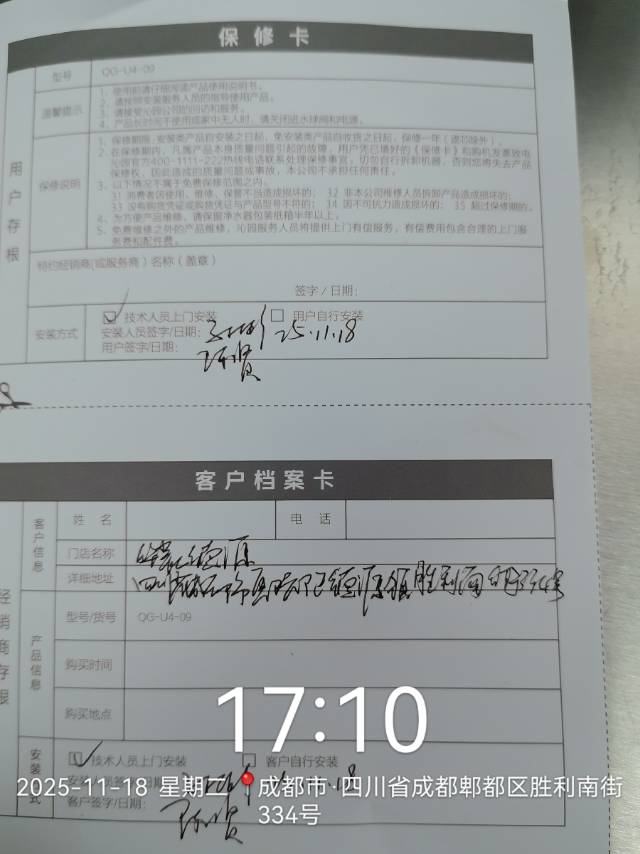 保修卡
用户存根
型号 QG-U4-09
温馨提示
1、使用前请仔细阅读产品使用说明书。
2、请按照安装服务人员的指导使用产品。
3、请接受沁园公司的回访和服务。
4、产品长时间不使用或家中无人时，请关闭进水球阀和电源。
保修说明
1、保修期限：安装类产品自安装之日起，免安装类产品自收货之日起，保修一年（滤芯除外）。
2、在保修期内，凡属产品本身质量问题引起的故障，用户凭已填好的《保修卡》和购机发票致电
沁园官方400-1111-222热线电话联系处理保修事宜，切勿自行拆卸机器，否则您将失去产品
保修权，因此造成的质量问题或事故，本公司不承担任何责任。
3、以下情况不属于免费保修范围之内。
31 消费者因使用、维修、保管不当造成损坏的； 32 非本公司维修人员拆卸产品造成损坏的；
33 没有购货凭证或购货凭证与产品型号不符的； 34 因不可抗力造成损坏的； 35 超过保修期的。
4、为方便产品维修，请保留净水器包装纸箱半年以上。
5、免费维修之外的产品维修，沁园服务人员将提供上门有偿服务，有偿费用包含合理的上门服
务费和配件费。
特约经销商(或服务商）名称（盖章）
签字 / 日期：
安装方式
技术人员上门安装 用户自行安装
安装人员签字/日期： 25.11.18
用户签字/日期：
客户档案卡
经销商存根
客户信息
姓 名 电 话
门店名称 德源
详细地址 德源镇胜利南街334号
产品信息
型号/货号 QG-U4-09
购买时间
购买地点
17:10
安装方式
技术人员上门安装 客户自行安装
安装人员签字/日期： 18
2025-11-18 星期二 成都市·四川省成都郫都区胜利南街
334号
客户签字/日期：